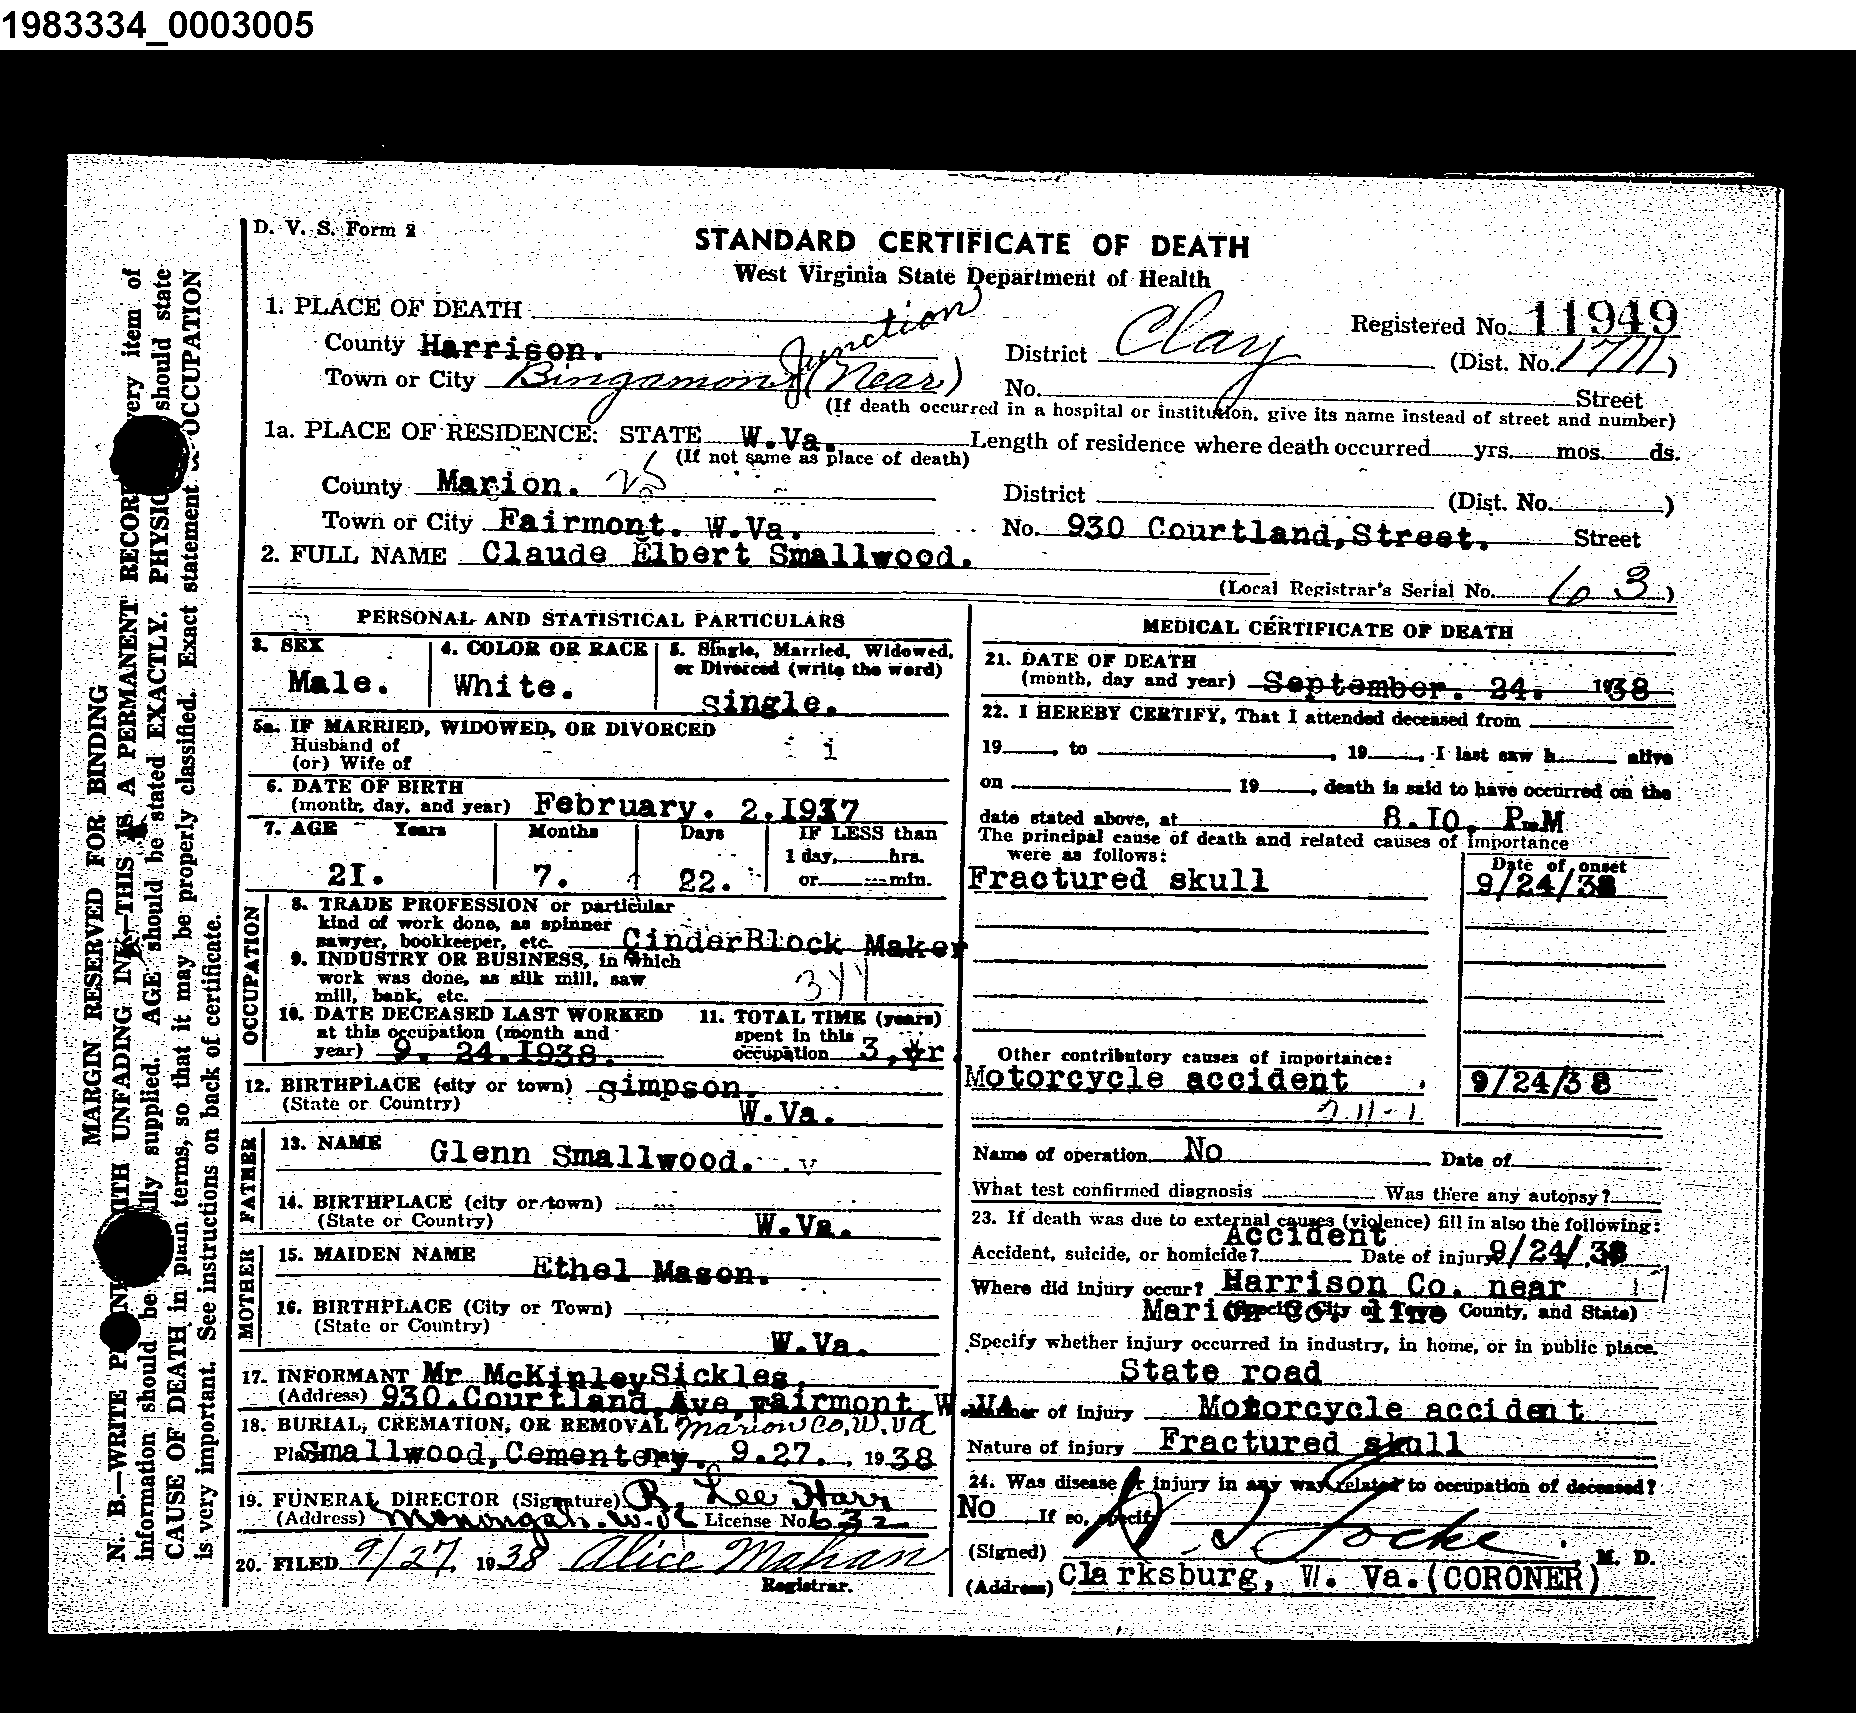 1983334_0003005
D. V. S. Form 2
STANDARD CERTIFICATE OF DEATH
West Virginia State Department of Health
1. PLACE OF DEATH
Registered No. 11949
County Harrison.
District Clay (Dist. No. 1711)
Town or City Bingamon Junction (Near)
No. Street
(If death occurred in a hospital or institution, give its name instead of street and number)
1a. PLACE OF RESIDENCE: STATE W.Va. Length of residence where death occurred yrs. mos. ds.
(If not same as place of death)
County Marion. 25 District (Dist. No. )
Town or City Fairmont. W.Va. No. 930 Courtland, Street. Street
2. FULL NAME Claude Elbert Smallwood.
(Local Registrar's Serial No. 63)
PERSONAL AND STATISTICAL PARTICULARS
3. SEX
Male.
4. COLOR OR RACE
White.
5. Single, Married, Widowed,
or Divorced (write the word)
single.
5a. IF MARRIED, WIDOWED, OR DIVORCED
Husband of
(or) Wife of
i
6. DATE OF BIRTH
(month, day, and year) February. 2. 1917
7. AGE Years Months Days IF LESS than
1 day, hrs.
or min.
21. 7. 22.
OCCUPATION
8. TRADE PROFESSION or particular
kind of work done, as spinner
sawyer, bookkeeper, etc. CinderBlock Maker
9. INDUSTRY OR BUSINESS, in which
work was done, as silk mill, saw
mill, bank, etc.
10. DATE DECEASED LAST WORKED
at this occupation (month and
year) 9. 24. 1938.
11. TOTAL TIME (years)
spent in this
occupation 3, yr.
12. BIRTHPLACE (city or town) Simpson.
(State or Country) W.Va.
FATHER
13. NAME Glenn Smallwood. v
14. BIRTHPLACE (city or town)
(State or Country) W.Va.
MOTHER
15. MAIDEN NAME Ethel Mason.
16. BIRTHPLACE (City or Town)
(State or Country) W.Va.
17. INFORMANT Mr McKinley Sickles,
(Address) 930. Courtland, Ave, Fairmont, W.VA
18. BURIAL, CREMATION, OR REMOVAL Marion Co, W. Va
Place Smallwood, Cementery. Date 9.27. 1938
19. FUNERAL DIRECTOR (Signature) R. Lee Harr
(Address) Monongah. W. Va License No. 632
20. FILED 9/27 1938 Alice Mahan
Registrar.
MEDICAL CERTIFICATE OF DEATH
21. DATE OF DEATH
(month, day and year) September. 24. 1938
22. I HEREBY CERTIFY, That I attended deceased from
19 , to , 19 , I last saw h alive
on 19 , death is said to have occurred on the
date stated above, at 8.10. P.M
The principal cause of death and related causes of importance
were as follows:
Date of onset
Fractured skull 9/24/38
Other contributory causes of importance:
Motorcycle accident 9/24/38
Name of operation No Date of
What test confirmed diagnosis Was there any autopsy?
23. If death was due to external causes (violence) fill in also the following:
Accident, suicide, or homicide? Accident Date of injury 9/24/38
Where did injury occur? Harrison Co. near
Marion Co. line
(Specify City or Town, County, and State)
Specify whether injury occurred in industry, in home, or in public place.
State road
Manner of injury Motorcycle accident
Nature of injury Fractured skull
24. Was disease or injury in any way related to occupation of deceased?
No If so, specify
(Signed) Locke M. D.
(Address) Clarksburg, W. Va. (CORONER)
MARGIN RESERVED FOR BINDING
N. B.—WRITE WITH UNFADING INK—THIS IS A PERMANENT RECORD. Every item of
information should be supplied. AGE should be stated EXACTLY. PHYSICIANS should state
CAUSE OF DEATH in plain terms, so that it may be properly classified. Exact statement of OCCUPATION
is very important. See instructions on back of certificate.